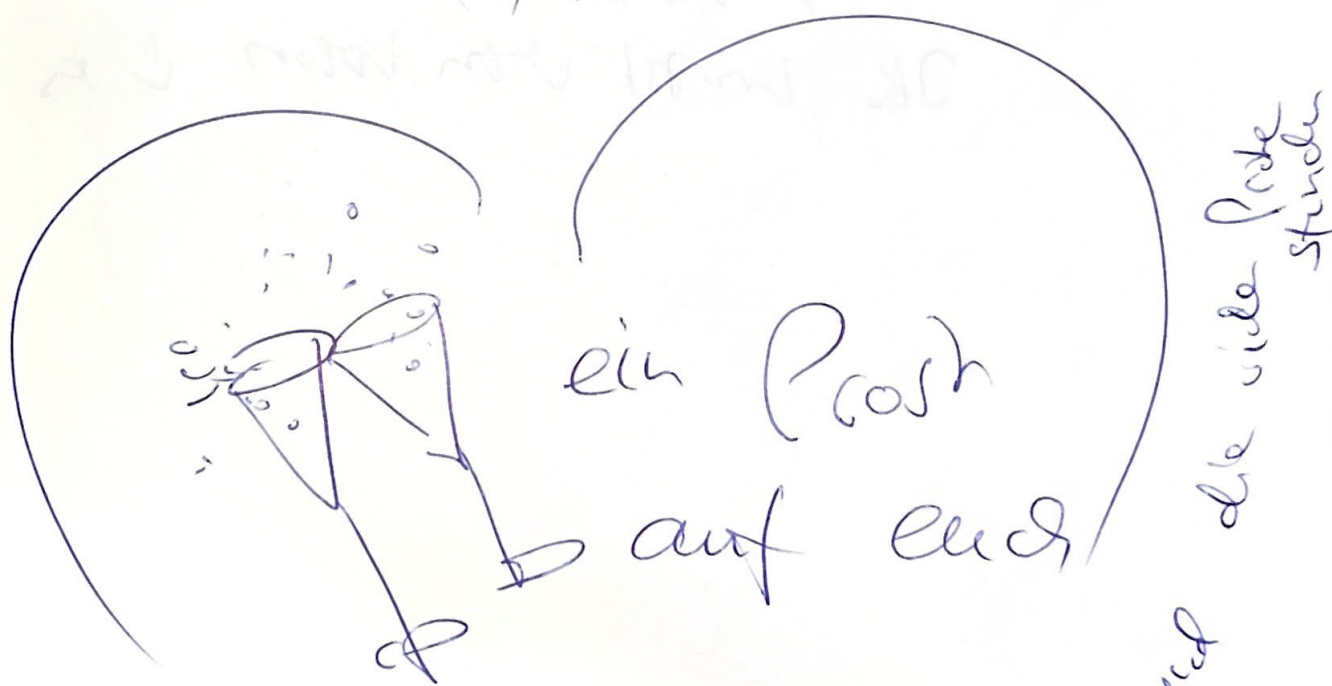 ein Prost
auf euch
und
die viele Probe
stunden